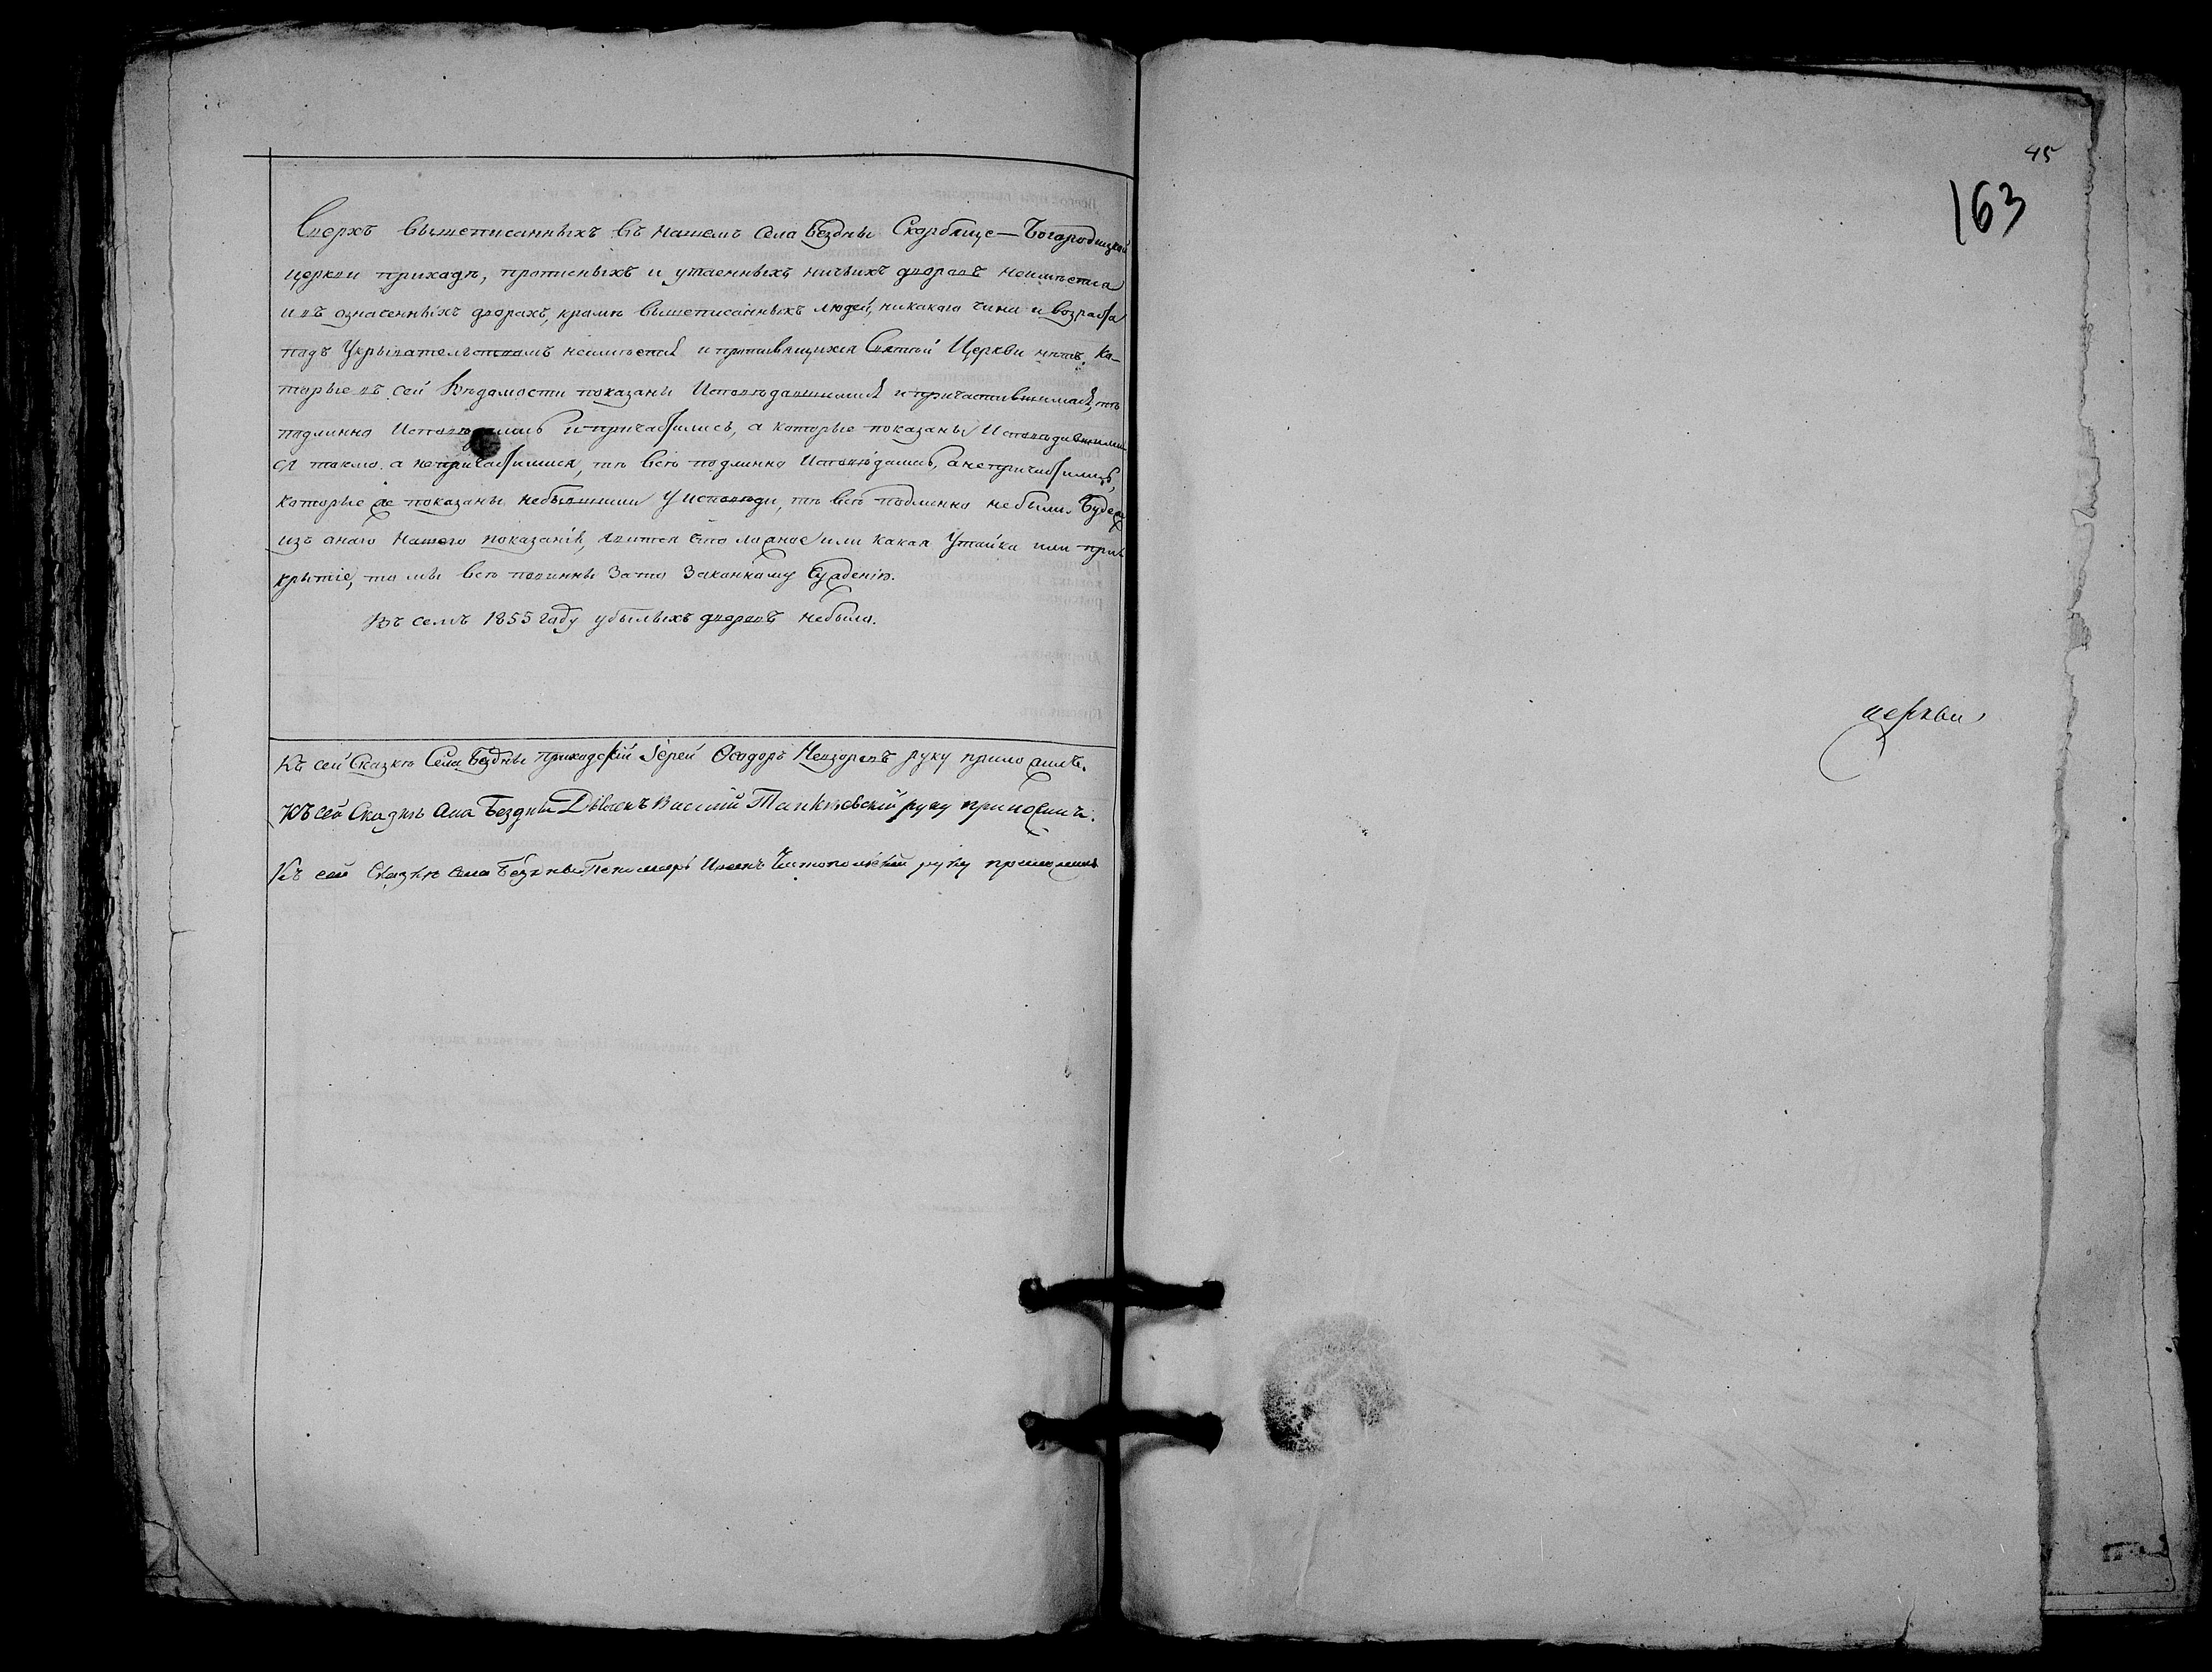 Сверхъ вышеписанныхъ въ нашемъ села Бездны Скорбяще-Богородицкой
церкви приходѣ, прописныхъ и утаенныхъ ничьихъ дворовъ неимѣется
и въ означенныхъ дворахъ, кромѣ вышеписанныхъ людей, никакого чина и возраста
подъ Укрывательствомъ неимѣется и противящихся Святой Церкви нѣтъ. Ко-
торые въ сей Вѣдомости показаны Исповѣдавшимися и причастившимися, тѣ
подлинно Исповѣдались и причастились, а которые показаны Исповѣдавшими
ся токмо, а непричастившися, тѣ всѣ подлинно Исповѣдались, а непричастились,
которые же показаны небывшими у исповѣди, тѣ всѣ подлинно небыли. Будеже
изъ онаго Нашего показанія, явится что ложное или какая Утайка или при
крытіе, то мы всѣ повинны Зато Законному Сужденію.
Въ семъ 1855 Году убылыхъ дворовъ небыло.
Къ сей Сказкѣ Села Бездны приходскій Іерей Ѳеодоръ Невзоровъ руку приложилъ.
Къ сей Сказкѣ Села Бездны Дьяконъ Василій руку приложилъ.
Къ сей Сказкѣ Села Бездны Пономарь Иванъ Чистопольскій руку приложилъ
45
163
церкви